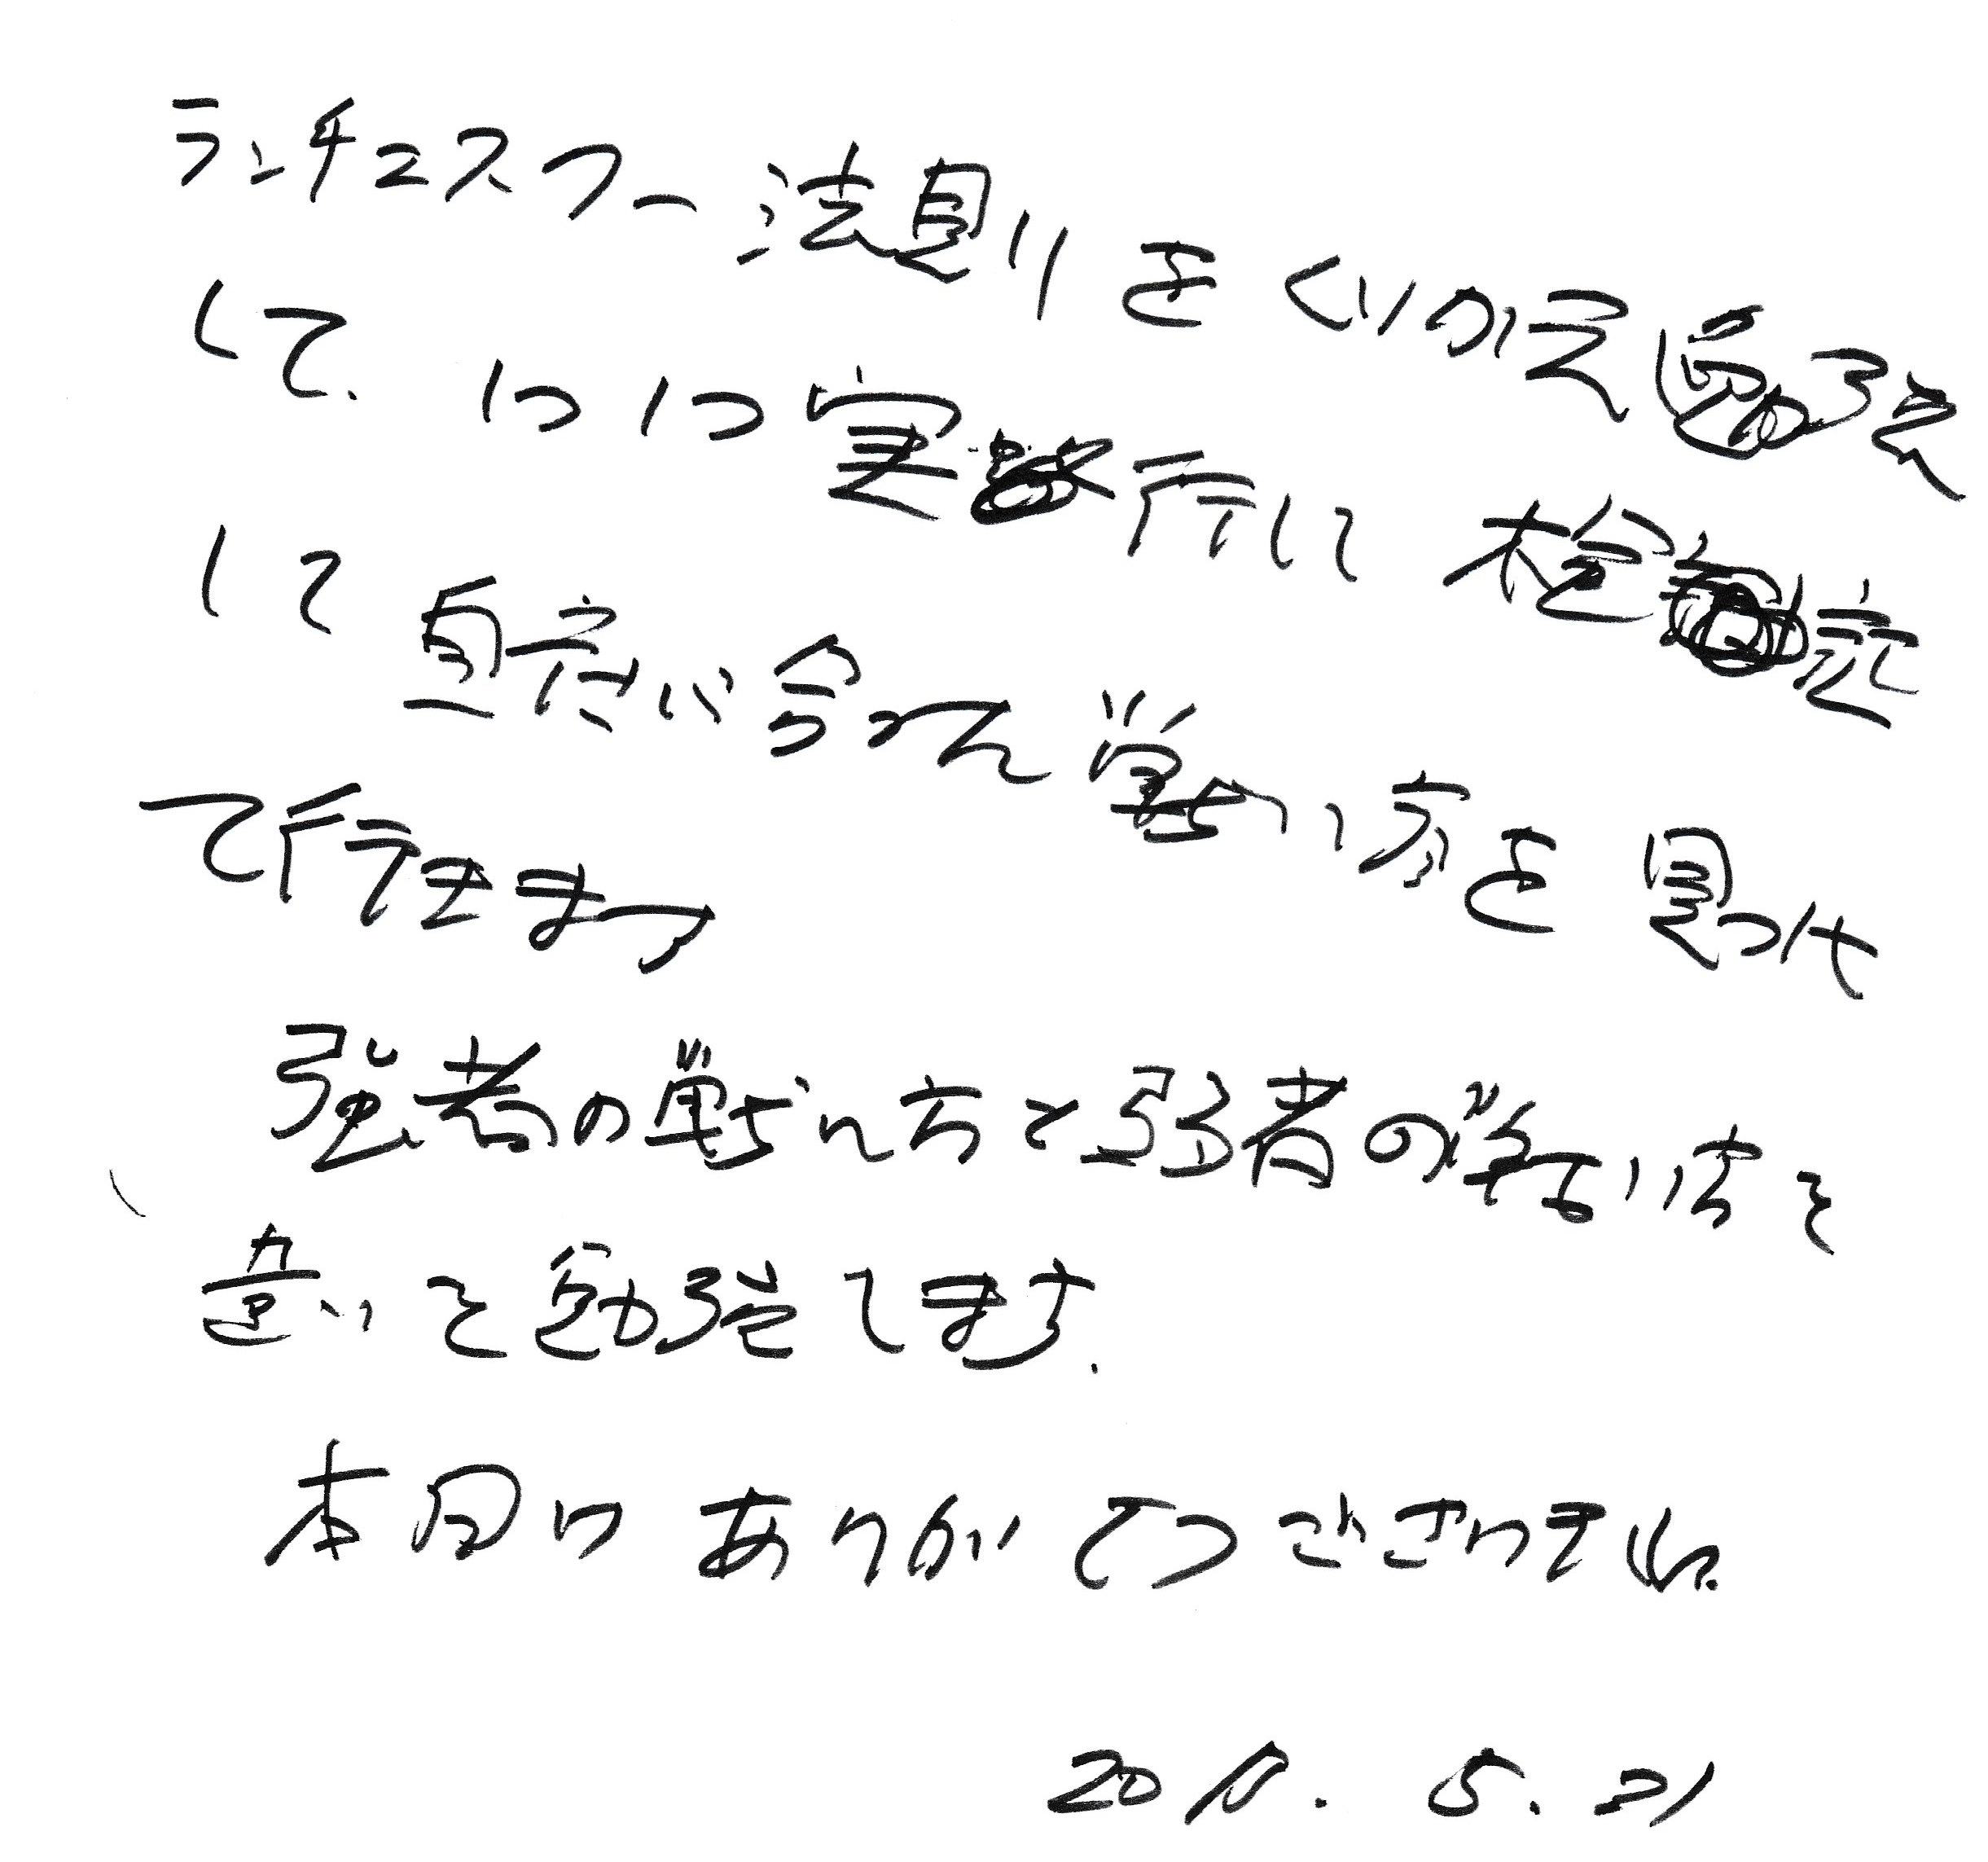 ランチェスター法則をくりかえ勉強
して、1つ1つ実行して検証
して自社に合った戦い方を見つけ
て行きます
強者の戦い方と弱者の戦い方を
違いを勉強してます.
本日はありがとうございました.
5.21